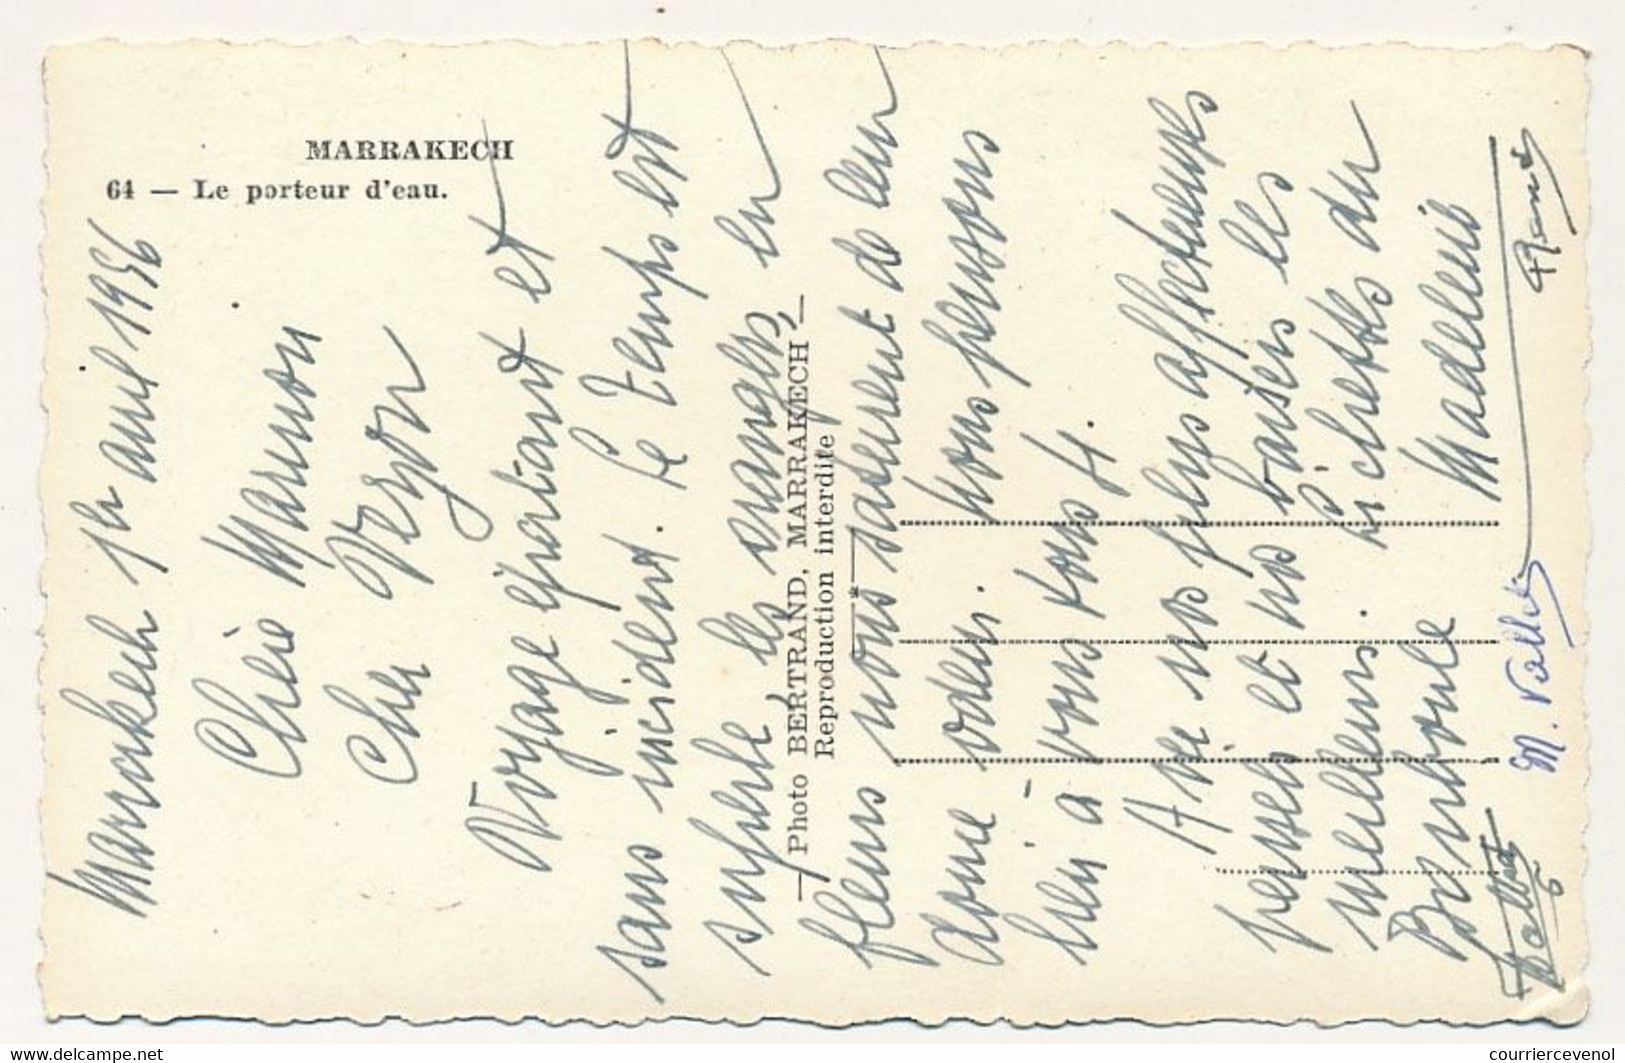 MARRAKECH
64 — Le porteur d'eau.
— Photo BERTRAND, MARRAKECH —
Reproduction interdite
Marrakech 1er avril 1956
Chère Mamon
Cher Veyon
Voyage épatant et
sans incident. Le temps est
superbe, les orangers en
fleurs nous saturent de leur
douce odeur. Nous pensons
bien à vous tous 4.
A vs nos plus affectueuses
pensées et nos baisers les
meilleurs.
Madeleine
René
M. Vallet
delcampe.net
courriercevenol